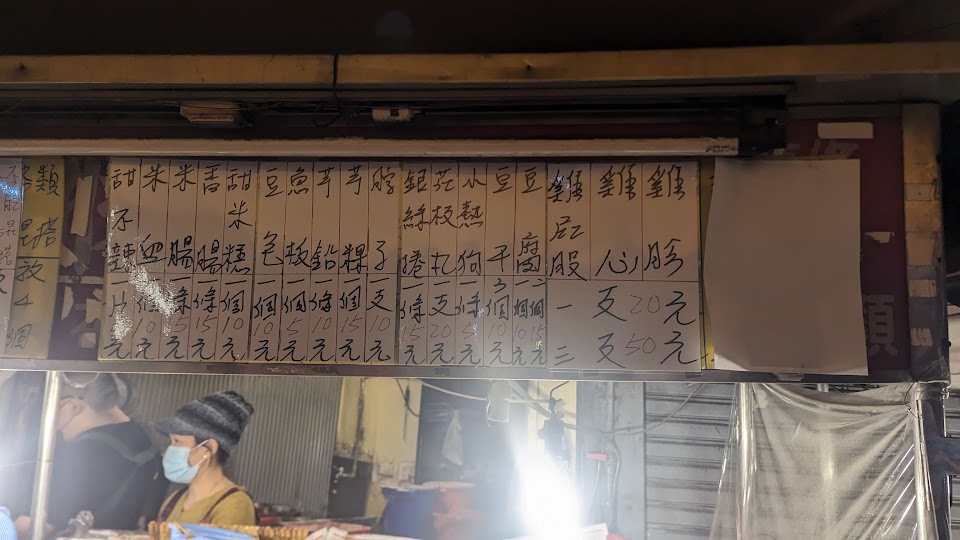 類混搭放4個
甜不辣一片10元
米血一個10元
米腸一條15元
香腸一條15元
甜米糕一個10元
豆包一個10元
魚板一個5元
芋鉛一條10元
芋粿一個15元
膛子一支10元
銀絲捲一條15元
花枝丸一支20元
小熱狗一條5元
豆干3個10元
豆腐一個10元二個15元
雞屁股
雞心
雞胗
一支20元
三支50元
類